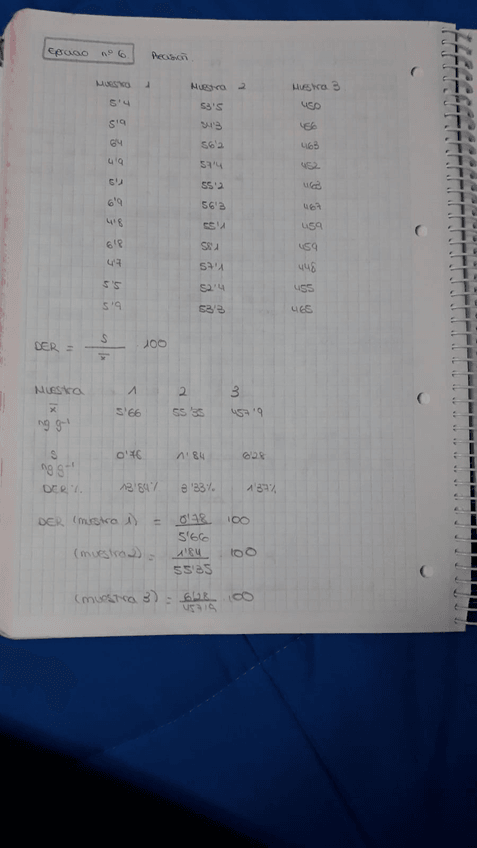 Ejercicio nº 6. Precisión.
Muestra 1 Muestra 2 Muestra 3
5'4 53'5 450
5'9 54'3 456
6'4 56'2 463
4'9 57'4 452
5'1 55'2 468
6'9 56'3 467
4'8 55'1 459
6'8 58'1 459
4'7 57'1 448
5'5 52'4 455
5'9 53'3 465
DER = S / x̄ 100
Muestra 1 2 3
x̄ 5'66 55'35 457'9
ng g⁻¹
S 0'76 1'84 6'28
ng g⁻¹
DER % 13'84% 3'33% 1'37%
DER (muestra 1) = 0'78 / 5'66 100
(muestra 2) = 1'84 / 55'35 100
(muestra 3) = 6'28 / 457'9 100